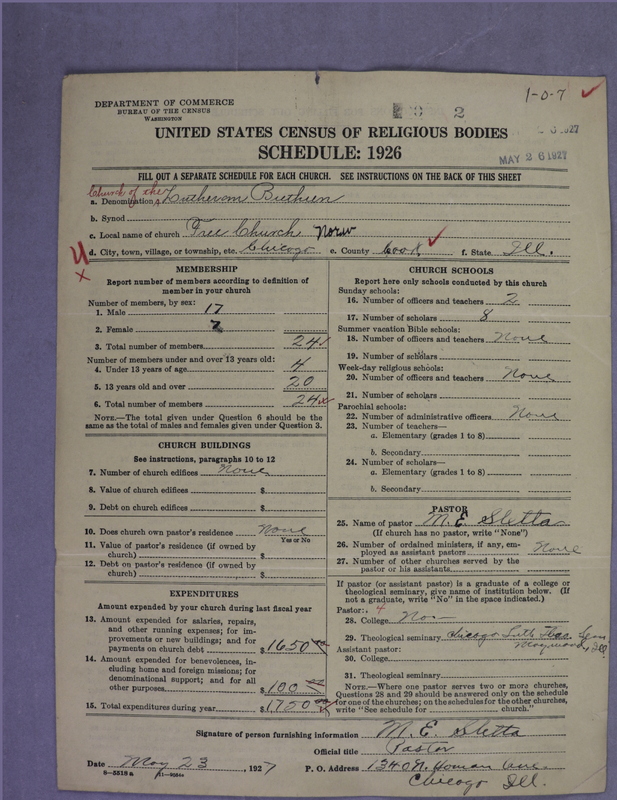 1-0-7
DEPARTMENT OF COMMERCE
BUREAU OF THE CENSUS
WASHINGTON
2
UNITED STATES CENSUS OF RELIGIOUS BODIES
SCHEDULE: 1926
MAY 26 1927
FILL OUT A SEPARATE SCHEDULE FOR EACH CHURCH. SEE INSTRUCTIONS ON THE BACK OF THIS SHEET
Church of the
a. Denomination Lutheran Brethren
b. Synod
c. Local name of church Free Church Norw
d. City, town, village, or township, etc. Chicago e. County Cook f. State Ill.
4
x
MEMBERSHIP
Report number of members according to definition of
member in your church
Number of members, by sex:
1. Male 17
2. Female 7
3. Total number of members 24
Number of members under and over 13 years old:
4. Under 13 years of age 4
5. 13 years old and over 20
6. Total number of members 24x
NOTE.—The total given under Question 6 should be
the same as the total of males and females given under Question 3.
CHURCH BUILDINGS
See instructions, paragraphs 10 to 12
7. Number of church edifices None
8. Value of church edifices $
9. Debt on church edifices $
10. Does church own pastor's residence None
Yes or No
11. Value of pastor's residence (if owned by
church) $
12. Debt on pastor's residence (if owned by
church) $
EXPENDITURES
Amount expended by your church during last fiscal year
13. Amount expended for salaries, repairs,
and other running expenses; for im-
provements or new buildings; and for
payments on church debt $1650
14. Amount expended for benevolences, in-
cluding home and foreign missions; for
denominational support; and for all
other purposes $100
15. Total expenditures during year $1750
CHURCH SCHOOLS
Report here only schools conducted by this church
Sunday schools:
16. Number of officers and teachers 2
17. Number of scholars 8
Summer vacation Bible schools:
18. Number of officers and teachers None
19. Number of scholars
Week-day religious schools:
20. Number of officers and teachers None
21. Number of scholars
Parochial schools:
22. Number of administrative officers None
23. Number of teachers—
a. Elementary (grades 1 to 8)
b. Secondary
24. Number of scholars—
a. Elementary (grades 1 to 8)
b. Secondary
PASTOR
25. Name of pastor M. E. Sletta
(If church has no pastor, write "None")
26. Number of ordained ministers, if any, em-
ployed as assistant pastors None
27. Number of other churches served by the
pastor or his assistants
If pastor (or assistant pastor) is a graduate of a college or
theological seminary, give name of institution below. (If
not a graduate, write "No" in the space indicated.)
Pastor: 4
28. College No
29. Theological seminary Chicago Luth Theo. Sem.
Maywood, Ill.
Assistant pastor:
30. College
31. Theological seminary
NOTE.—Where one pastor serves two or more churches,
Questions 28 and 29 should be answered only on the schedule
for one of the churches; on the schedules for the other churches,
write "See schedule for church."
Signature of person furnishing information M. E. Sletta
Official title Pastor
Date May 23, 1927 P. O. Address 1340 N. Homan Ave.
8—5518 a Chicago Ill.